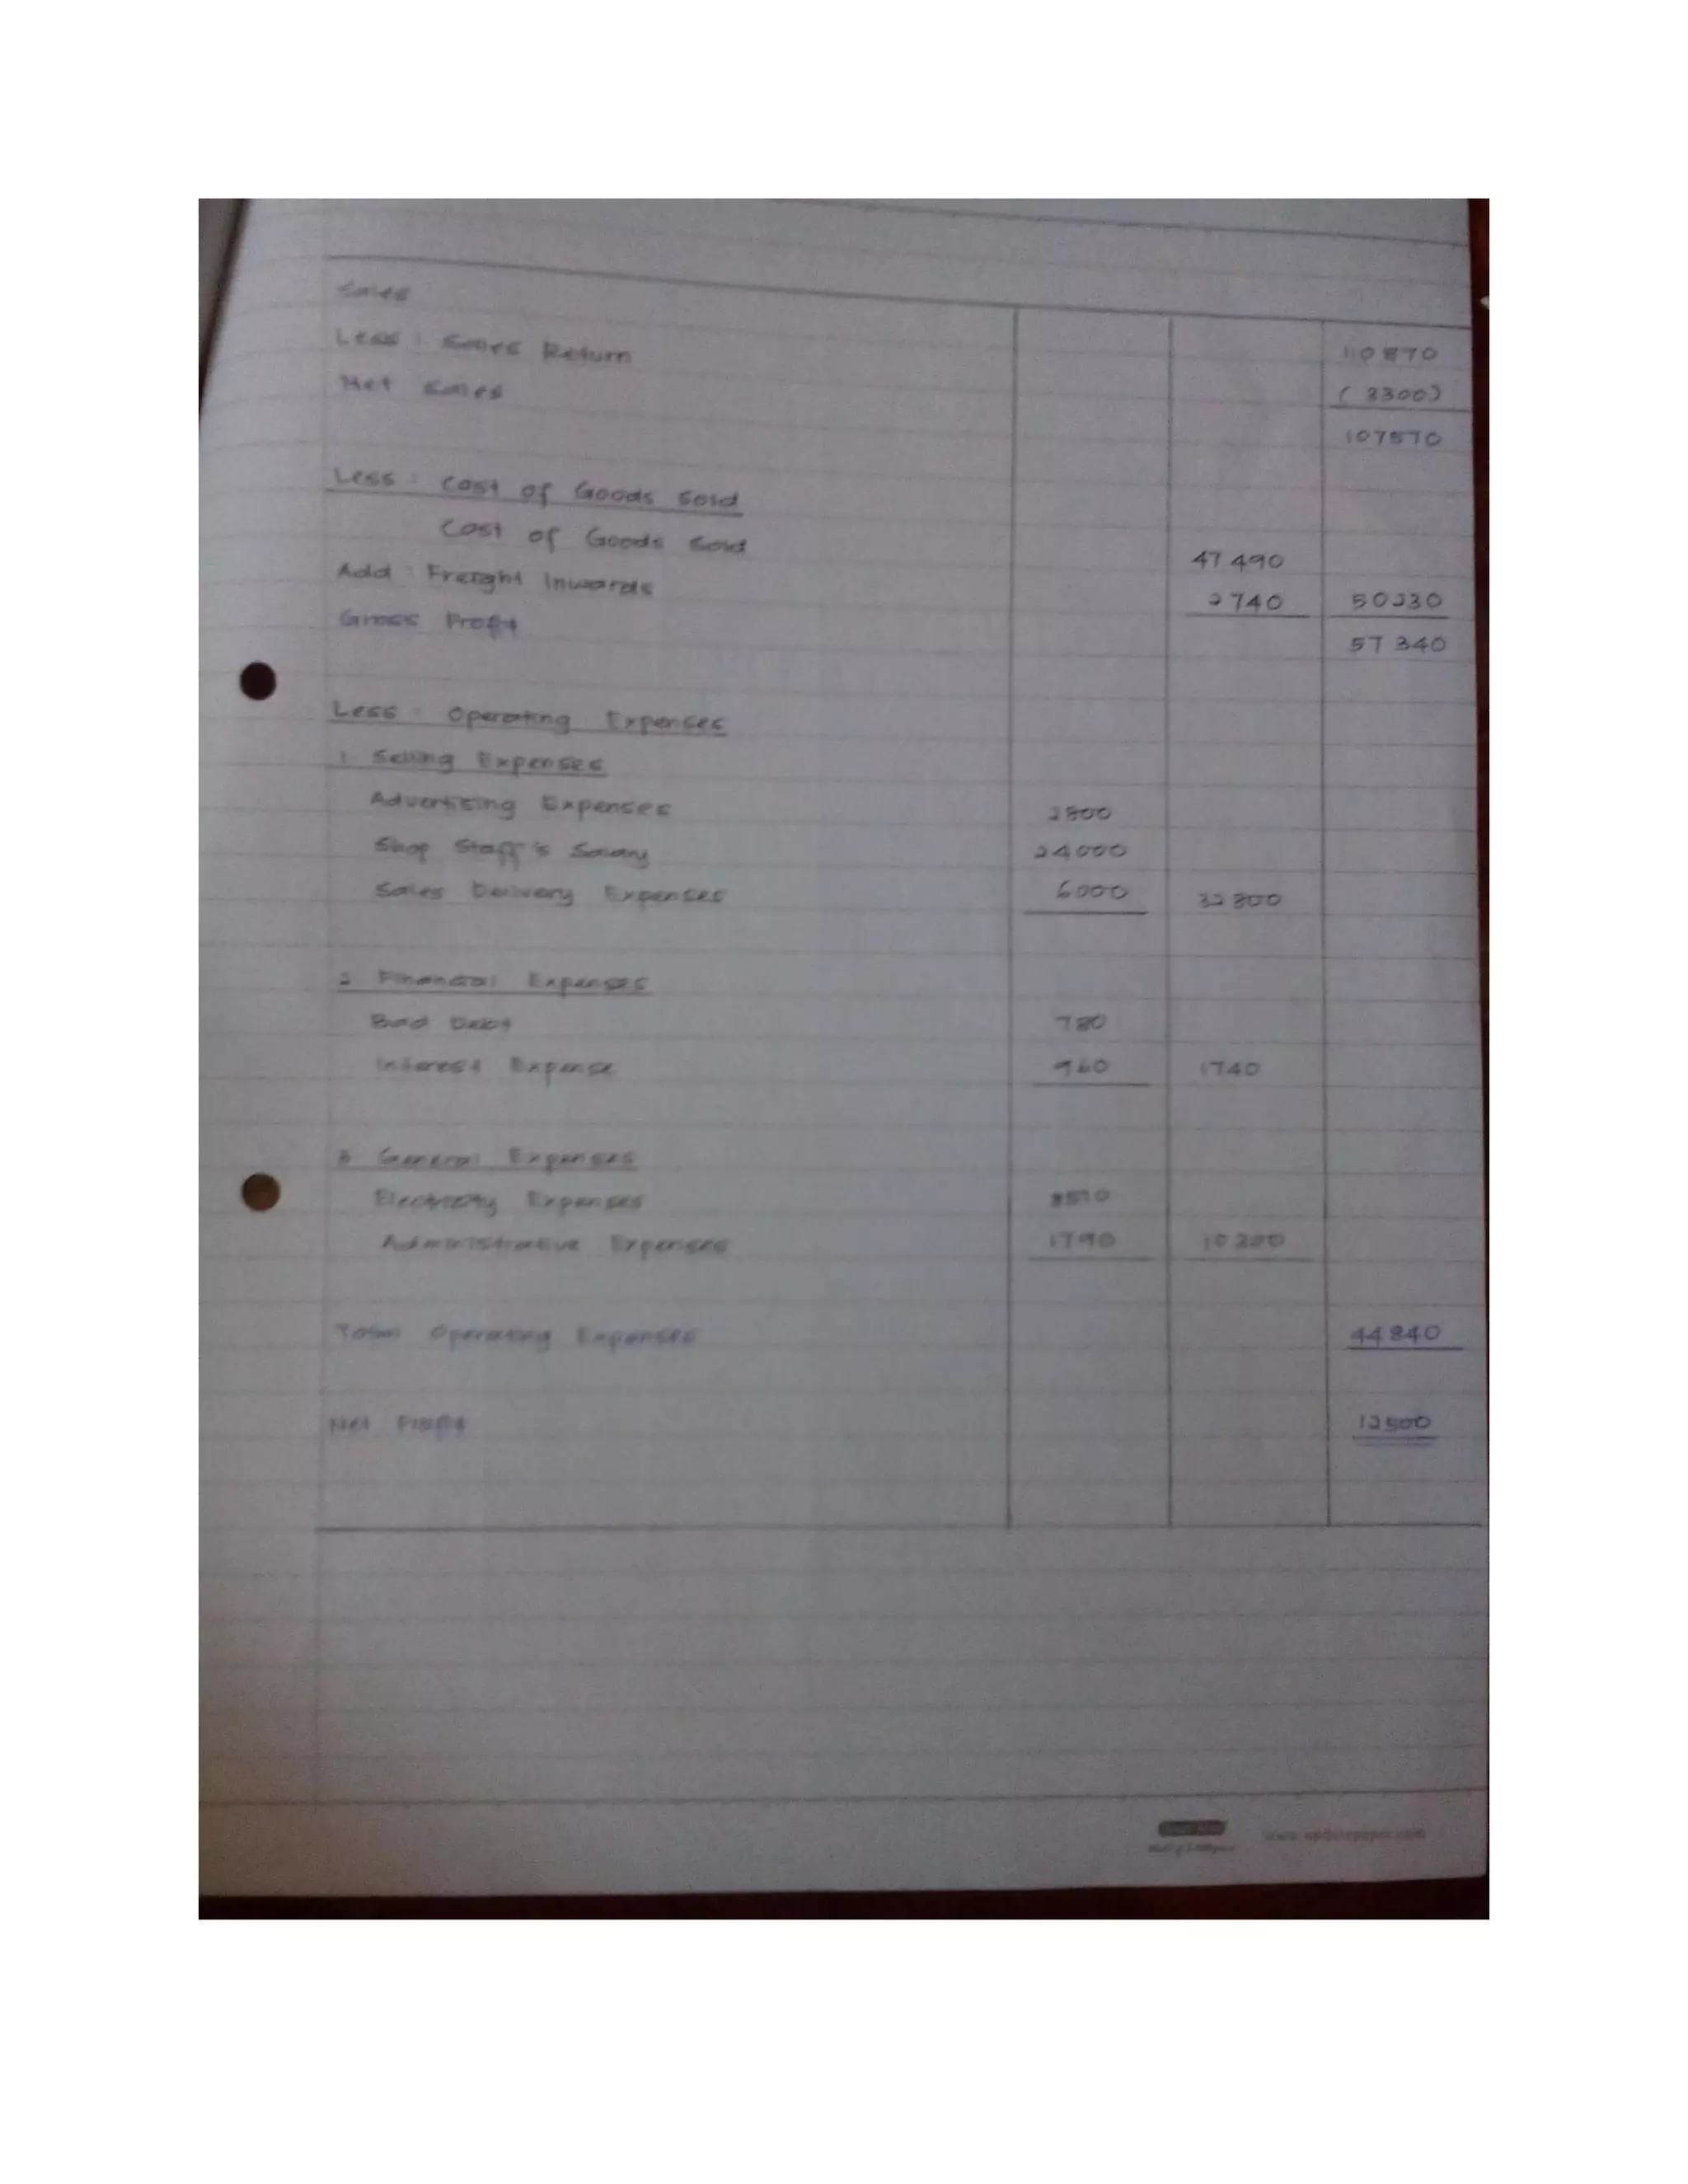 Sales 110870
Less : Sales Return (3300)
Net Sales 107570
Less : Cost of Goods Sold
Cost of Goods Sold 47 490
Add : Freight Inwards 2740 50230
Gross Profit 57 340
Less : Operating Expenses
1. Selling Expenses
Advertising Expenses 2800
Shop Staff's Salary 24000
Sales Delivery Expenses 6000 32 800
2 Financial Expenses
Bad Debt 780
Interest Expense 960 1740
3 General Expenses
Electricity Expenses 8510
Administrative Expenses 1790 10 300
Total Operating Expenses 44 840
Net Profit 12500